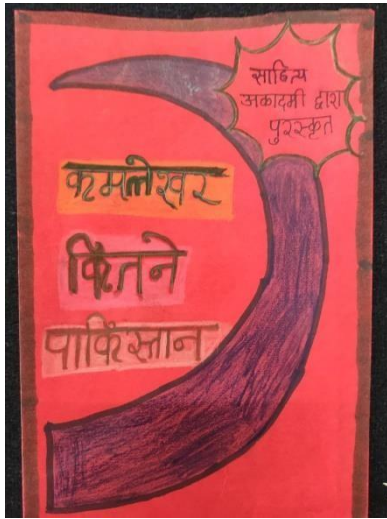 साहित्य
अकादमी द्वारा
पुरस्कृत
कमलेश्वर
कितने
पाकिस्तान